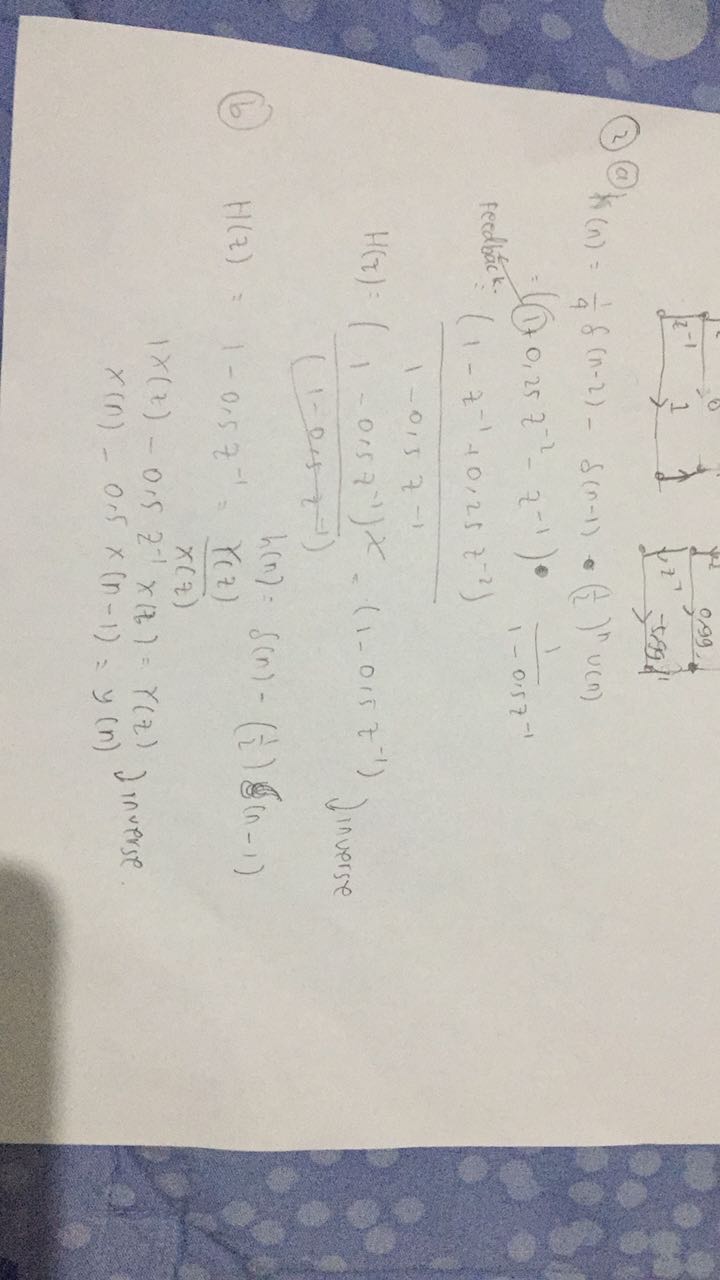 z⁻¹ 1
0.99
z⁻¹ -5.99
② ⓐ h(n) = 1/4 δ(n-2) - δ(n-1) • (1/2)ⁿ u(n)
= (1 + 0,25 z⁻² - z⁻¹) • 1/(1 - 0,5z⁻¹)
Feedback.
= (1 - z⁻¹ + 0,25 z⁻²)
1 - 0,5 z⁻¹
H(z) = (1 - 0,5 z⁻¹)² = (1 - 0,5 z⁻¹) inverse
(1 - 0,5 z⁻¹)
h(n) = δ(n) - (1/2) δ(n-1)
ⓑ H(z) = 1 - 0,5 z⁻¹ = Y(z)/X(z)
1X(z) - 0,5 z⁻¹ X(z) = Y(z) inverse.
x(n) - 0,5 x(n-1) = y(n)